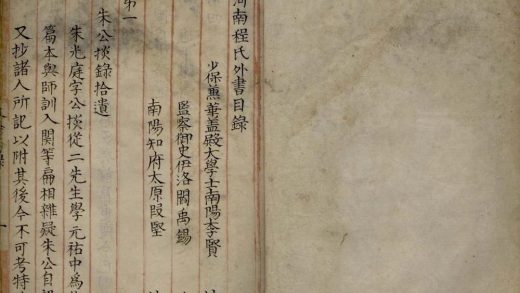 河南程氏外書目錄
少保兼華盖殿大學士南陽李賢
監察御史伊洛閻禹錫
南陽知府太原段堅
第一
朱公掞錄拾遺
朱光庭字公掞從二先生學元祐中為
篇本與師訓入關等扁相雜疑朱公自
又抄諸人所記以附其後今不可考特